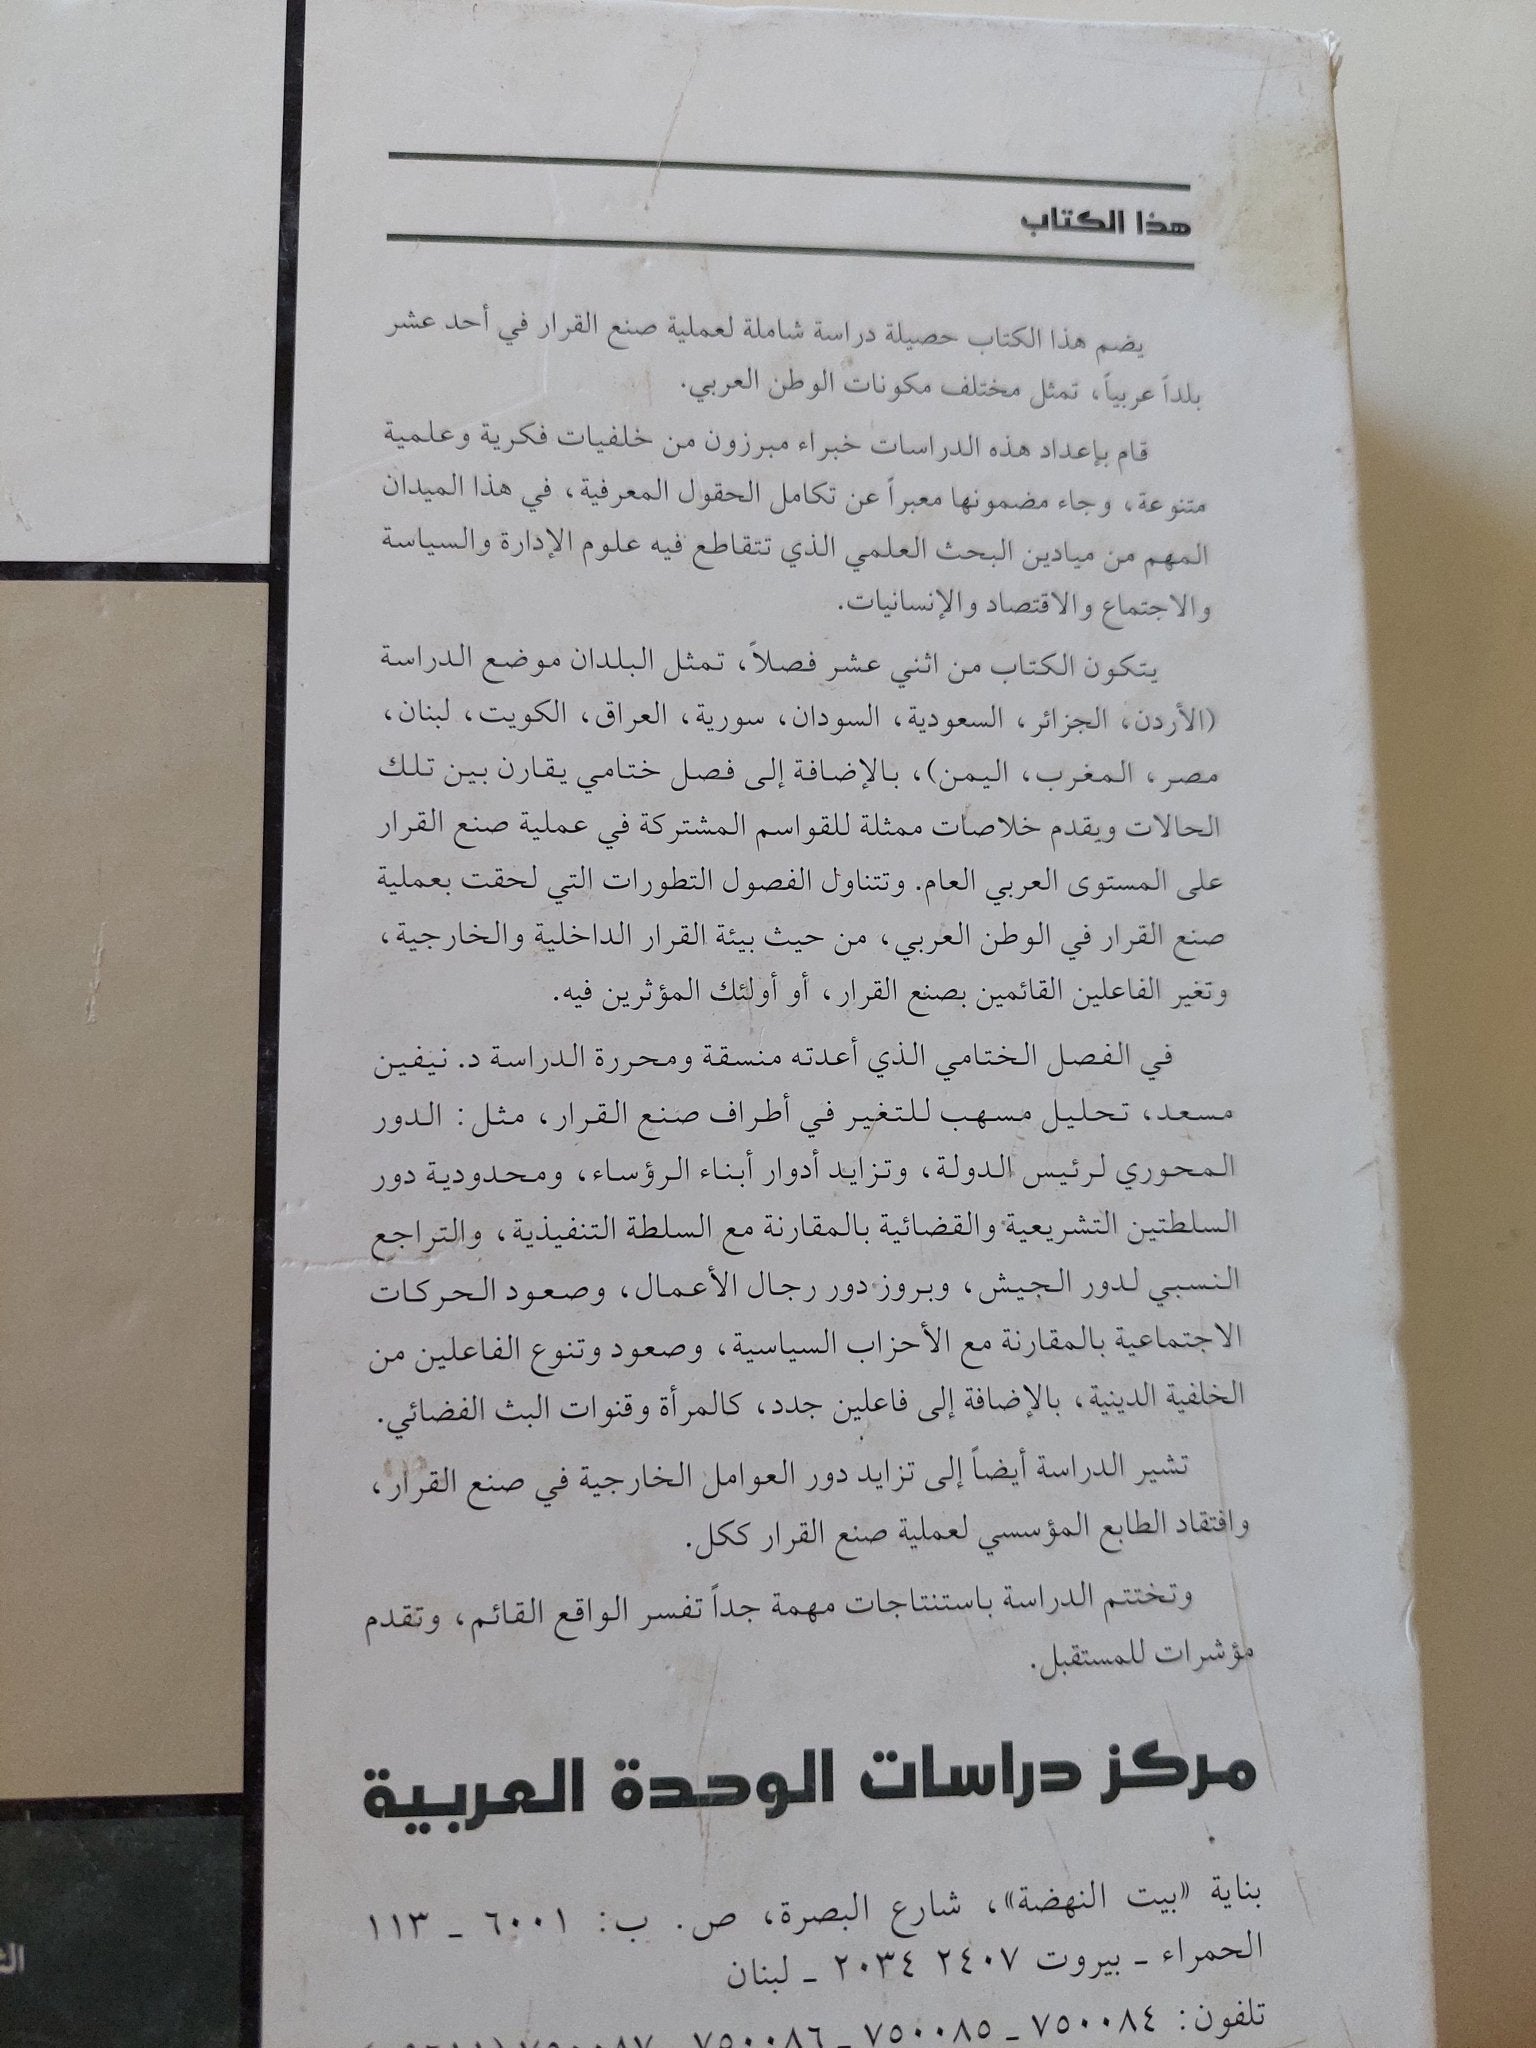 هذا الكتاب
يضم هذا الكتاب حصيلة دراسة شاملة لعملية صنع القرار في أحد عشر
بلداً عربياً، تمثل مختلف مكونات الوطن العربي.
قام بإعداد هذه الدراسات خبراء مبرزون من خلفيات فكرية وعلمية
متنوعة، وجاء مضمونها معبراً عن تكامل الحقول المعرفية، في هذا الميدان
المهم من ميادين البحث العلمي الذي تتقاطع فيه علوم الإدارة والسياسة
والاجتماع والاقتصاد والإنسانيات.
يتكون الكتاب من اثني عشر فصلاً، تمثل البلدان موضع الدراسة
(الأردن، الجزائر، السعودية، السودان، سورية، العراق، الكويت، لبنان،
مصر، المغرب، اليمن)، بالإضافة إلى فصل ختامي يقارن بين تلك
الحالات ويقدم خلاصات ممثلة للقواسم المشتركة في عملية صنع القرار
على المستوى العربي العام. وتتناول الفصول التطورات التي لحقت بعملية
صنع القرار في الوطن العربي، من حيث بيئة القرار الداخلية والخارجية،
وتغير الفاعلين القائمين بصنع القرار، أو أولئك المؤثرين فيه.
في الفصل الختامي الذي أعدته منسقة ومحررة الدراسة د. نيفين
مسعد، تحليل مسهب للتغير في أطراف صنع القرار، مثل: الدور
المحوري لرئيس الدولة، وتزايد أدوار أبناء الرؤساء، ومحدودية دور
السلطتين التشريعية والقضائية بالمقارنة مع السلطة التنفيذية، والتراجع
النسبي لدور الجيش، وبروز دور رجال الأعمال، وصعود الحركات
الاجتماعية بالمقارنة مع الأحزاب السياسية، وصعود وتنوع الفاعلين من
الخلفية الدينية، بالإضافة إلى فاعلين جدد، كالمرأة وقنوات البث الفضائي.
تشير الدراسة أيضاً إلى تزايد دور العوامل الخارجية في صنع القرار،
وافتقاد الطابع المؤسسي لعملية صنع القرار ككل.
وتختتم الدراسة باستنتاجات مهمة جداً تفسر الواقع القائم، وتقدم
مؤشرات للمستقبل.
مركز دراسات الوحدة العربية
بناية «بيت النهضة»، شارع البصرة، ص. ب: ٦٠٠١ ـ ١١٣
الحمراء ـ بيروت ٢٤٠٧ ٢٠٣٤ ـ لبنان
تلفون: ٧٥٠٠٨٤ ـ ٧٥٠٠٨٥ ـ ٧٥٠٠٨٦ ـ ٧٥٠٠٨٧